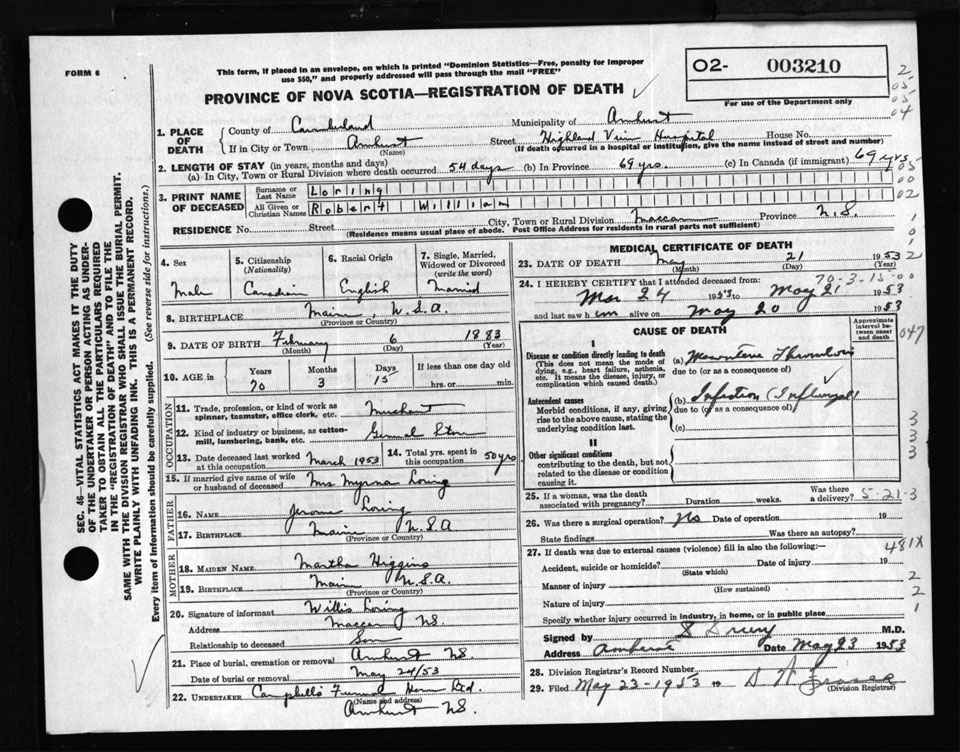 FORM 6
This form, if placed in an envelope, on which is printed "Dominion Statistics—Free, penalty for improper
use $50," and properly addressed will pass through the mail "FREE"
O2- 003210
For use of the Department only
2-
05-
05-
04
PROVINCE OF NOVA SCOTIA—REGISTRATION OF DEATH
1. PLACE OF DEATH
County of Cumberland Municipality of Amherst
If in City or Town Amherst Street Highland View Hospital House No.
(Name) (If death occurred in a hospital or institution, give the name instead of street and number)
2. LENGTH OF STAY (in years, months and days)
(a) In City, Town or Rural Division where death occurred 54 days (b) In Province 69 yrs. (c) In Canada (if immigrant) 69 yrs
3. PRINT NAME OF DECEASED
Surname or Last Name Loring
All Given or Christian Names Robert William
RESIDENCE No. Street City, Town or Rural Division Maccan Province N.S.
(Residence means usual place of abode. Post Office Address for residents in rural parts not sufficient)
4. Sex
Male
5. Citizenship
(Nationality)
Canadian
6. Racial Origin
English
7. Single, Married, Widowed or Divorced
(write the word)
Married
8. BIRTHPLACE Maine, U.S.A.
(Province or Country)
9. DATE OF BIRTH February 6 1883
(Month) (Day) (Year)
10. AGE in Years Months Days If less than one day old
70 3 15 hrs. or min.
OCCUPATION
11. Trade, profession, or kind of work as spinner, teamster, office clerk, etc. Merchant
12. Kind of industry or business, as cotton-mill, lumbering, bank, etc. General Store
13. Date deceased last worked at this occupation March 1953
14. Total yrs. spent in this occupation 50 yrs
15. If married give name of wife or husband of deceased Mrs Myrna Loring
FATHER
16. NAME Jerome Loring
17. BIRTHPLACE Maine U.S.A
(Province or Country)
MOTHER
18. MAIDEN NAME Martha Higgins
19. BIRTHPLACE Maine U.S.A.
(Province or Country)
20. Signature of informant Willis Loring
Address Maccan NS
Relationship to deceased Son
21. Place of burial, cremation or removal Amherst NS.
Date of burial or removal May 24/53
22. UNDERTAKER Campbell's Funeral Home Ltd.
(Name and address)
Amherst NS.
MEDICAL CERTIFICATE OF DEATH
23. DATE OF DEATH May 21 1953
(Month) (Day) (Year)
70-3-15-00
24. I HEREBY CERTIFY that I attended deceased from:
Mar 24 1953 to May 21 1953
and last saw him alive on May 20 1953
CAUSE OF DEATH
Approximate interval between onset and death
047
I
Disease or condition directly leading to death
(This does not mean the mode of dying, e.g., heart failure, asthenia, etc. It means the disease, injury, or complication which caused death.
(a) Thrombosis
due to (or as a consequence of)
Antecedent causes
Morbid conditions, if any, giving rise to the above cause, stating the underlying condition last.
(b) Infection (Influenzal)
due to (or as a consequence of)
(c)
II
Other significant conditions
contributing to the death, but not related to the disease or condition causing it.
3
3
3
25. If a woman, was the death associated with pregnancy? Duration weeks. Was there a delivery? 5-21-3
26. Was there a surgical operation? Date of operation 19
State findings Was there an autopsy?
27. If death was due to external causes (violence) fill in also the following:— 481X
Accident, suicide or homicide? Date of injury 19
(State which)
Manner of injury
(How sustained)
Nature of injury
Specify whether injury occurred in industry, in home, or in public place
2
2
1
Signed by M.D.
Address Amherst Date May 23 1953
28. Division Registrar's Record Number
29. Filed May 23-1953 19
(Division Registrar)
SEC. 46—VITAL STATISTICS ACT MAKES IT THE DUTY
OF THE UNDERTAKER OR PERSON ACTING AS UNDER-
TAKER TO OBTAIN ALL THE PARTICULARS REQUIRED
IN THE "REGISTRATION OF DEATH" AND TO FILE THE
SAME WITH THE DIVISION REGISTRAR WHO SHALL ISSUE THE BURIAL PERMIT.
WRITE PLAINLY WITH UNFADING INK. THIS IS A PERMANENT RECORD.
Every item of Information should be carefully supplied. (See reverse side for instructions.)